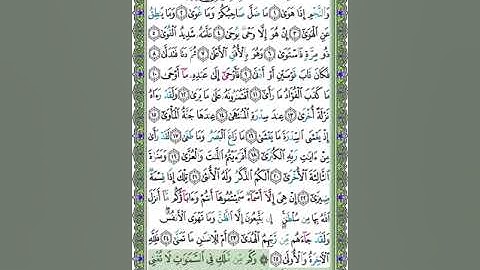 وَالنَّجْمِ إِذَا هَوَىٰ ۝١ مَا ضَلَّ صَاحِبُكُمْ وَمَا غَوَىٰ ۝٢ وَمَا يَنطِقُ
عَنِ الْهَوَىٰ ۝٣ إِنْ هُوَ إِلَّا وَحْيٌ يُوحَىٰ ۝٤ عَلَّمَهُ شَدِيدُ الْقُوَىٰ ۝٥
ذُو مِرَّةٍ فَاسْتَوَىٰ ۝٦ وَهُوَ بِالْأُفُقِ الْأَعْلَىٰ ۝٧ ثُمَّ دَنَا فَتَدَلَّىٰ ۝٨
فَكَانَ قَابَ قَوْسَيْنِ أَوْ أَدْنَىٰ ۝٩ فَأَوْحَىٰ إِلَىٰ عَبْدِهِ مَا أَوْحَىٰ ۝١٠
مَا كَذَبَ الْفُؤَادُ مَا رَأَىٰ ۝١١ أَفَتُمَارُونَهُ عَلَىٰ مَا يَرَىٰ ۝١٢ وَلَقَدْ رَآهُ
نَزْلَةً أُخْرَىٰ ۝١٣ عِندَ سِدْرَةِ الْمُنتَهَىٰ ۝١٤ عِندَهَا جَنَّةُ الْمَأْوَىٰ ۝١٥
إِذْ يَغْشَى السِّدْرَةَ مَا يَغْشَىٰ ۝١٦ مَا زَاغَ الْبَصَرُ وَمَا طَغَىٰ ۝١٧ لَقَدْ رَأَىٰ
مِنْ آيَاتِ رَبِّهِ الْكُبْرَىٰ ۝١٨ أَفَرَأَيْتُمُ اللَّاتَ وَالْعُزَّىٰ ۝١٩ وَمَنَاةَ
الثَّالِثَةَ الْأُخْرَىٰ ۝٢٠ أَلَكُمُ الذَّكَرُ وَلَهُ الْأُنثَىٰ ۝٢١ تِلْكَ إِذًا قِسْمَةٌ
ضِيزَىٰ ۝٢٢ إِنْ هِيَ إِلَّا أَسْمَاءٌ سَمَّيْتُمُوهَا أَنتُمْ وَآبَاؤُكُم مَّا أَنزَلَ
اللَّهُ بِهَا مِن سُلْطَانٍ إِن يَتَّبِعُونَ إِلَّا الظَّنَّ وَمَا تَهْوَى الْأَنفُسُ
وَلَقَدْ جَاءَهُم مِّن رَّبِّهِمُ الْهُدَىٰ ۝٢٣ أَمْ لِلْإِنسَانِ مَا تَمَنَّىٰ ۝٢٤ فَلِلَّهِ
الْآخِرَةُ وَالْأُولَىٰ ۝٢٥ ۞ وَكَم مِّن مَّلَكٍ فِي السَّمَاوَاتِ لَا تُغْنِي